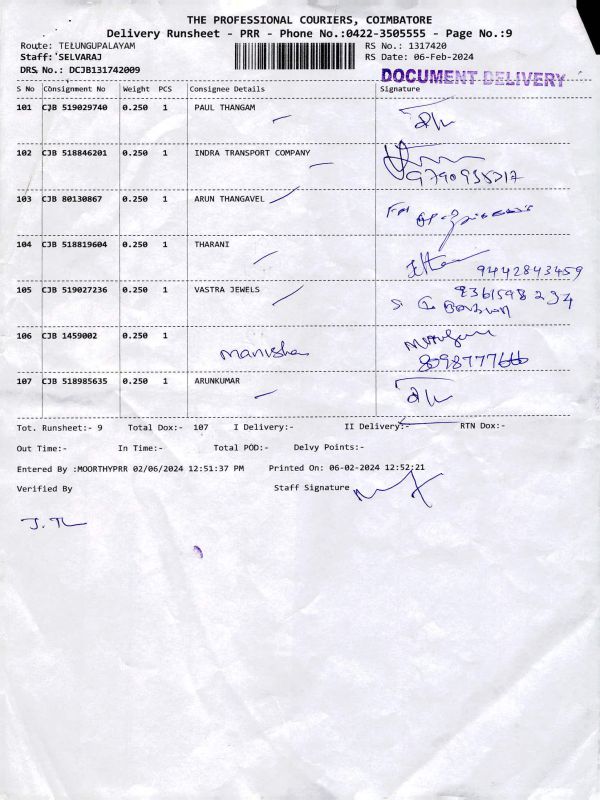 THE PROFESSIONAL COURIERS, COIMBATORE
Delivery Runsheet - PRR - Phone No.:0422-3505555 - Page No.:9
Route: TELUNGUPALAYAM RS No.: 1317420
Staff: SELVARAJ RS Date: 06-Feb-2024
DRS No.: DCJB131742009
DOCUMENT DELIVERY
S No Consignment No Weight PCS Consignee Details Signature
101 CJB 519029740 0.250 1 PAUL THANGAM
102 CJB 518846201 0.250 1 INDRA TRANSPORT COMPANY
103 CJB 80130867 0.250 1 ARUN THANGAVEL
104 CJB 518819604 0.250 1 THARANI
9442843459
105 CJB 519027236 0.250 1 VASTRA JEWELS
106 CJB 1459002 0.250 1
manisha
107 CJB 518985635 0.250 1 ARUNKUMAR
Tot. Runsheet:- 9 Total Dox:- 107 I Delivery:- II Delivery:- RTN Dox:-
Out Time:- In Time:- Total POD:- Delvy Points:-
Entered By :MOORTHYPRR 02/06/2024 12:51:37 PM Printed On: 06-02-2024 12:52:21
Verified By Staff Signature